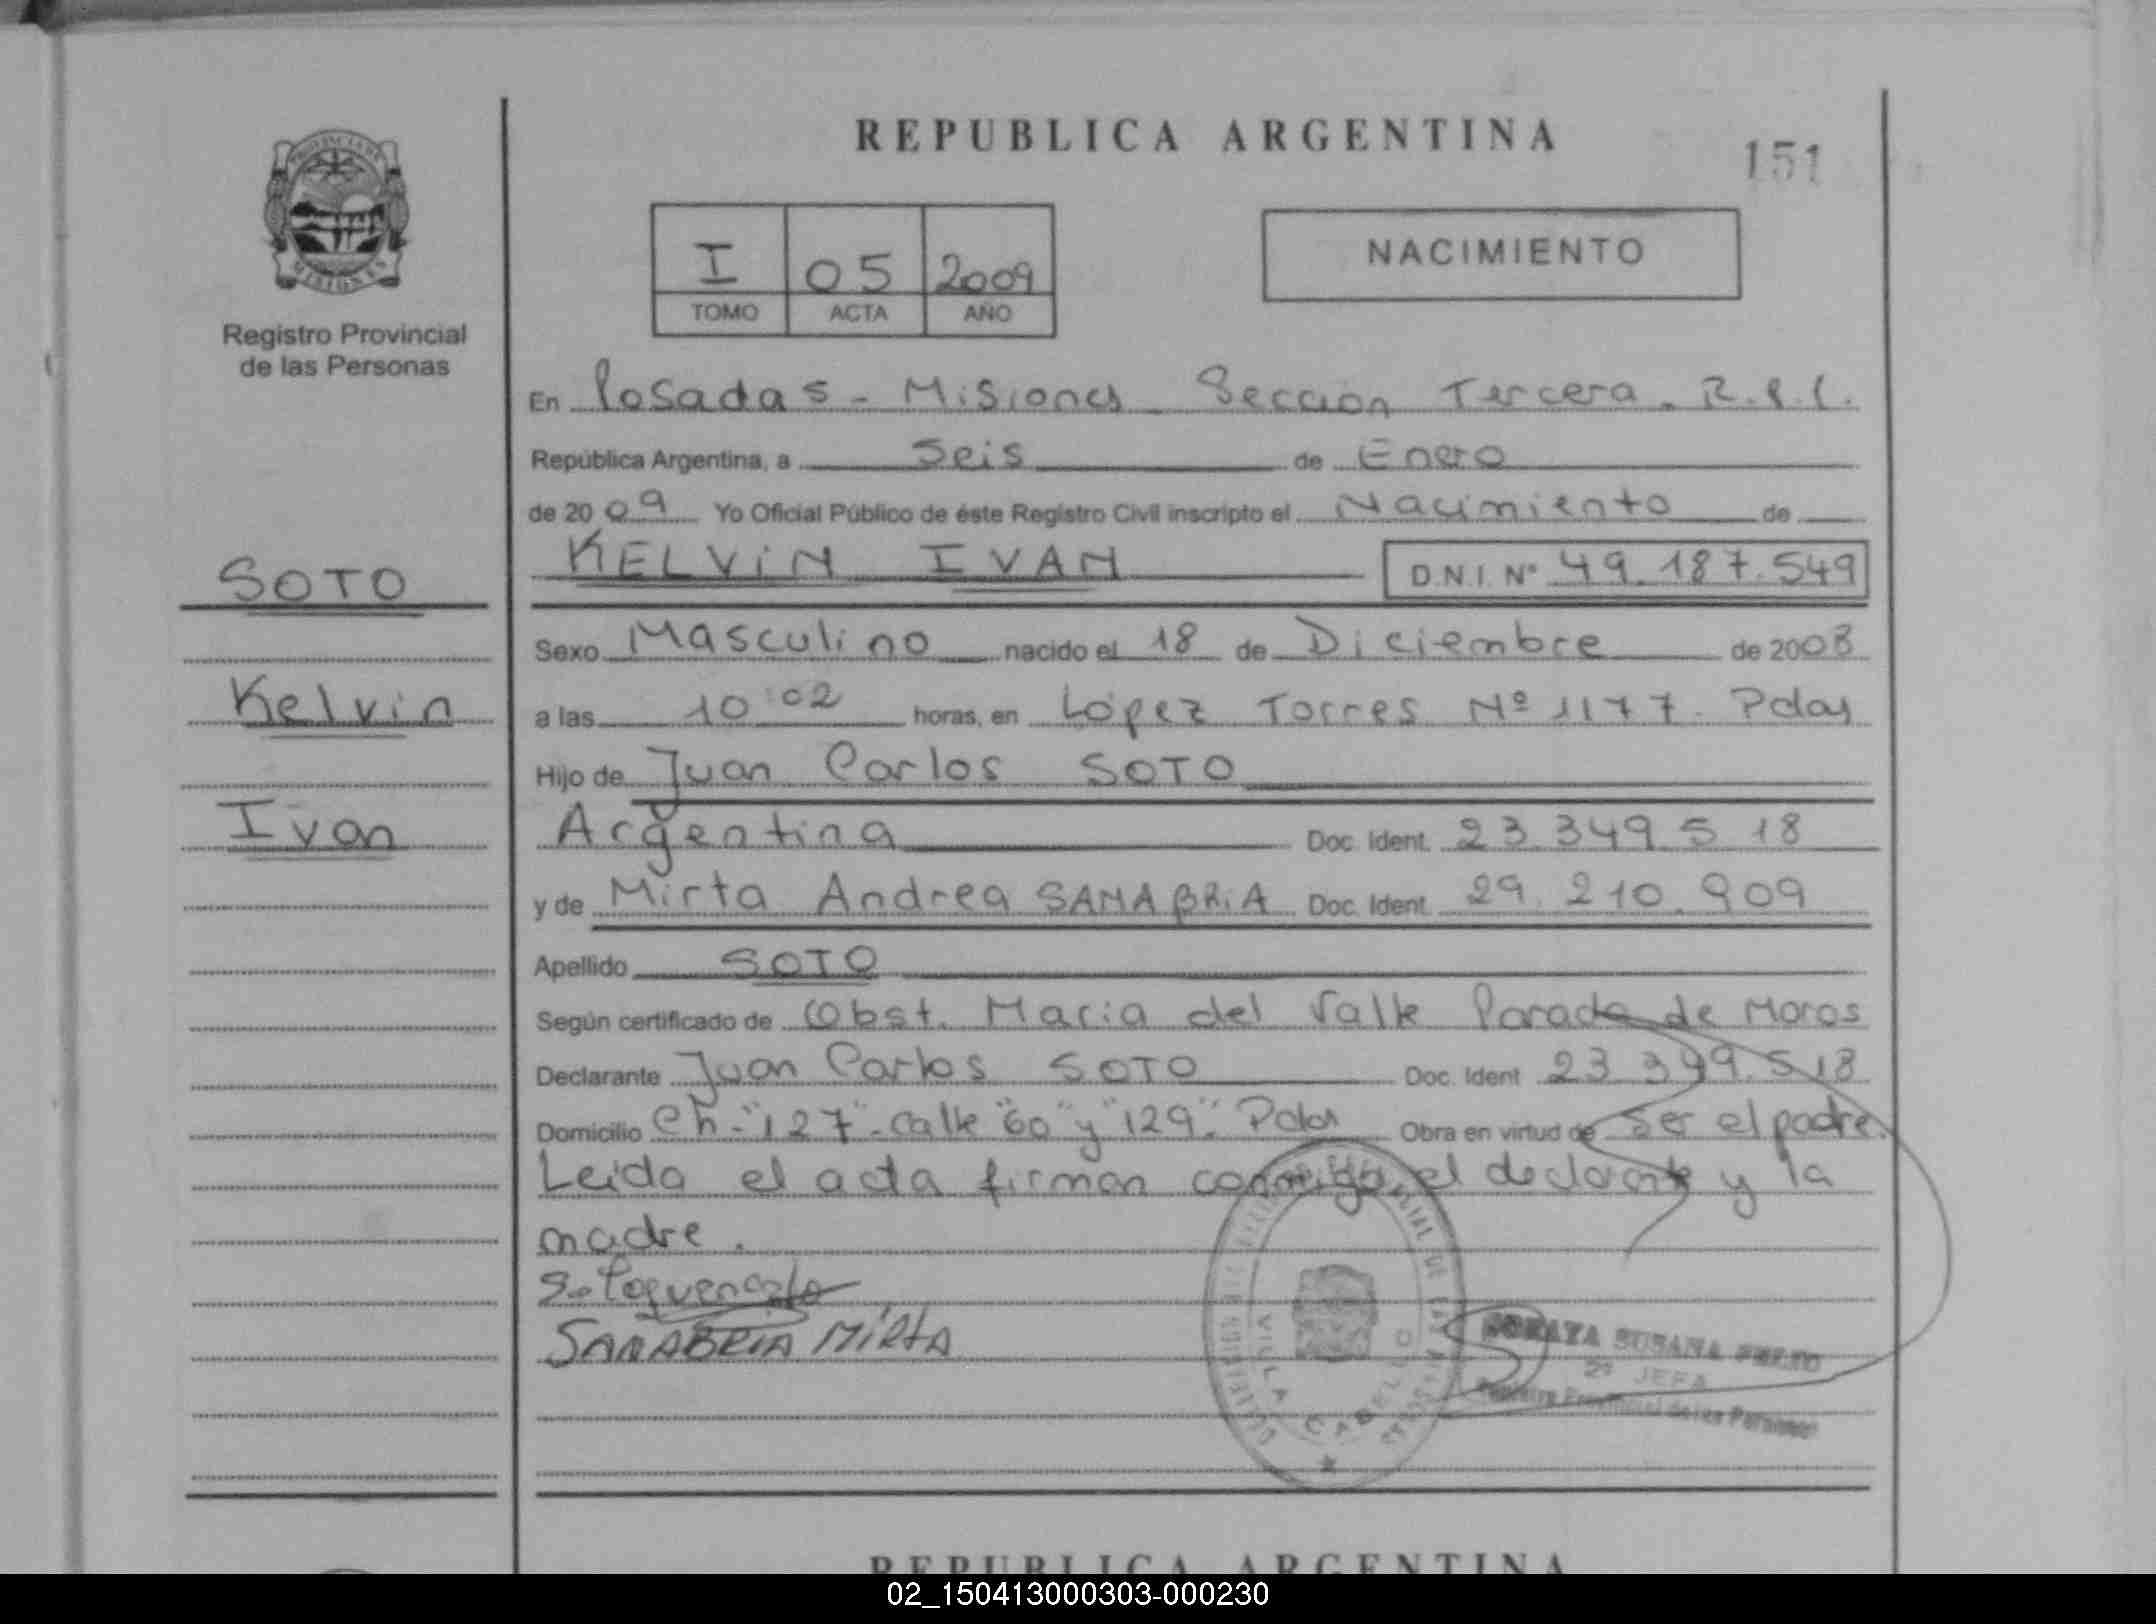 REPUBLICA ARGENTINA
151
PROVINCIA DE
MISIONES
Registro Provincial
de las Personas
I 05 2009
TOMO ACTA AÑO
NACIMIENTO
En Posadas - Misiones - Sección Tercera - R.P.C.
República Argentina, a Seis de Enero
de 2009 Yo Oficial Público de éste Registro Civil inscripto el Nacimiento de
KELVIN IVAN D.N.I. Nº 49.187.549
SOTO
Kelvin
Ivan
Sexo Masculino nacido el 18 de Diciembre de 2008
a las 10:02 horas, en López Torres Nº 1177. Pdas
Hijo de Juan Carlos SOTO
Argentina Doc. Ident. 23.349.518
y de Mirta Andrea SANABRIA Doc. Ident. 29.210.909
Apellido SOTO
Según certificado de Obst. Maria del Valle Parada de Moras
Declarante Juan Carlos SOTO Doc. Ident 23 349.518
Domicilio Ch-"127"-calle "60" y "129". Pdas Obra en virtud de ser el padre.
Leida el acta firman conmigo el declarante y la
madre.
SANABRIA MIRTA
VILLA CABELLO
SORAYA SUSANA
2º JEFA
Registro Provincial de las Personas
REPUBLICA ARGENTINA
02_150413000303-000230